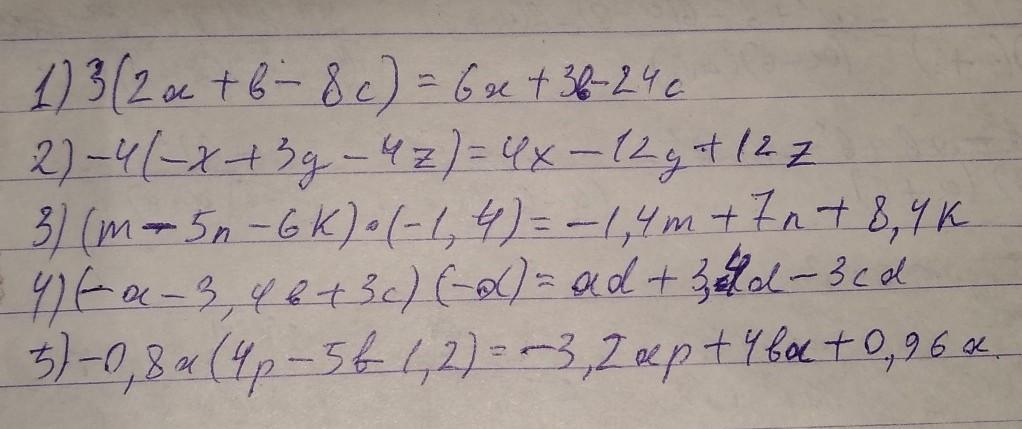 1) 3(2a + b - 8c) = 6a + 3b - 24c
2) -4(-x + 3y - 4z) = 4x - 12y + 12z
3) (m - 5n - 6k) • (-1,4) = -1,4m + 7n + 8,4k
4) (-a - 3,4b + 3c) (-d) = ad + 3,4d - 3cd
5) -0,8a(4p - 5b - 1,2) = -3,2ap + 4ba + 0,96a.